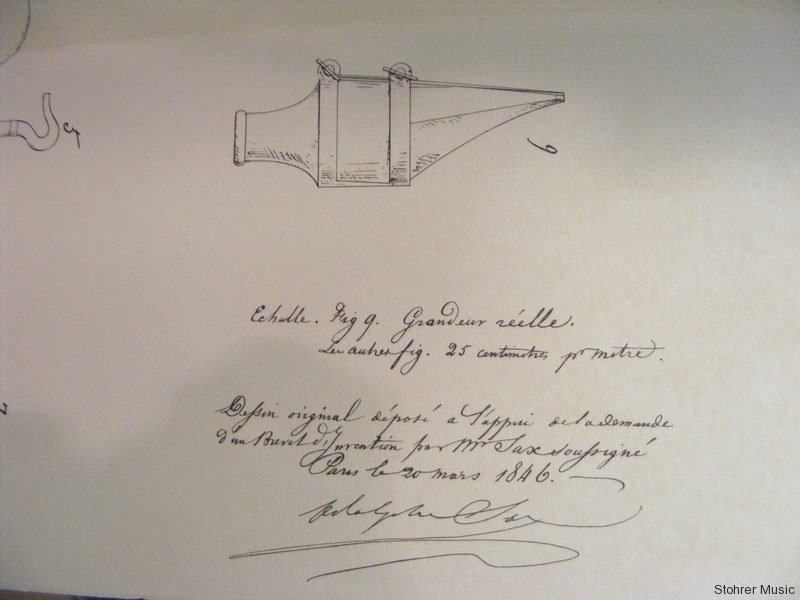 6
Echelle. Fig 9. Grandeur réelle.
Les autres fig. 25 centimetres pr metre.
Dessin original déposé a l'appui de la demande
d'un Brevet d'Invention par Mr Sax soussigné
Paris le 20 mars 1846.
Adolphe Sax
Stohrer Music